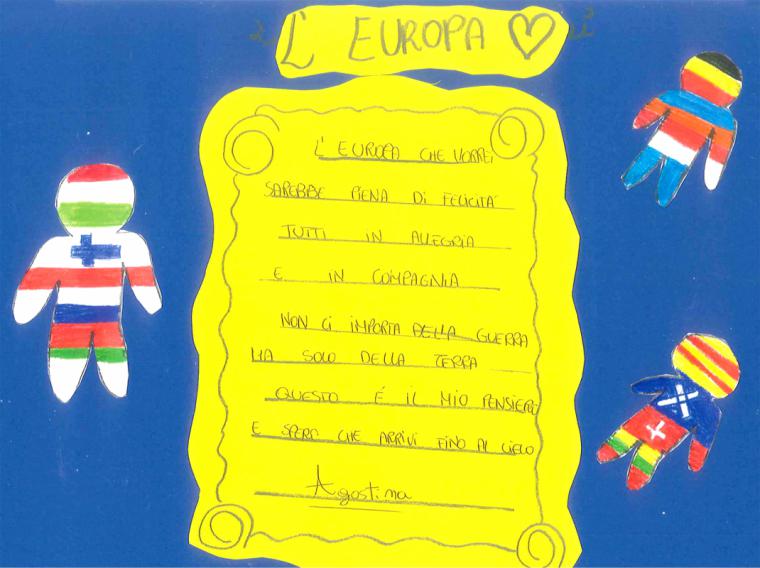 L' EUROPA
L' EUROPA CHE VORREI
SAREBBE PIENA DI FELICITA'
TUTTI IN ALLEGRIA
E IN COMPAGNIA
NON CI IMPORTA DELLA GUERRA
MA SOLO DELLA TERRA
QUESTO É IL MIO PENSIERO
E SPERO CHE ARRIVI FINO AL CIELO
Agostina